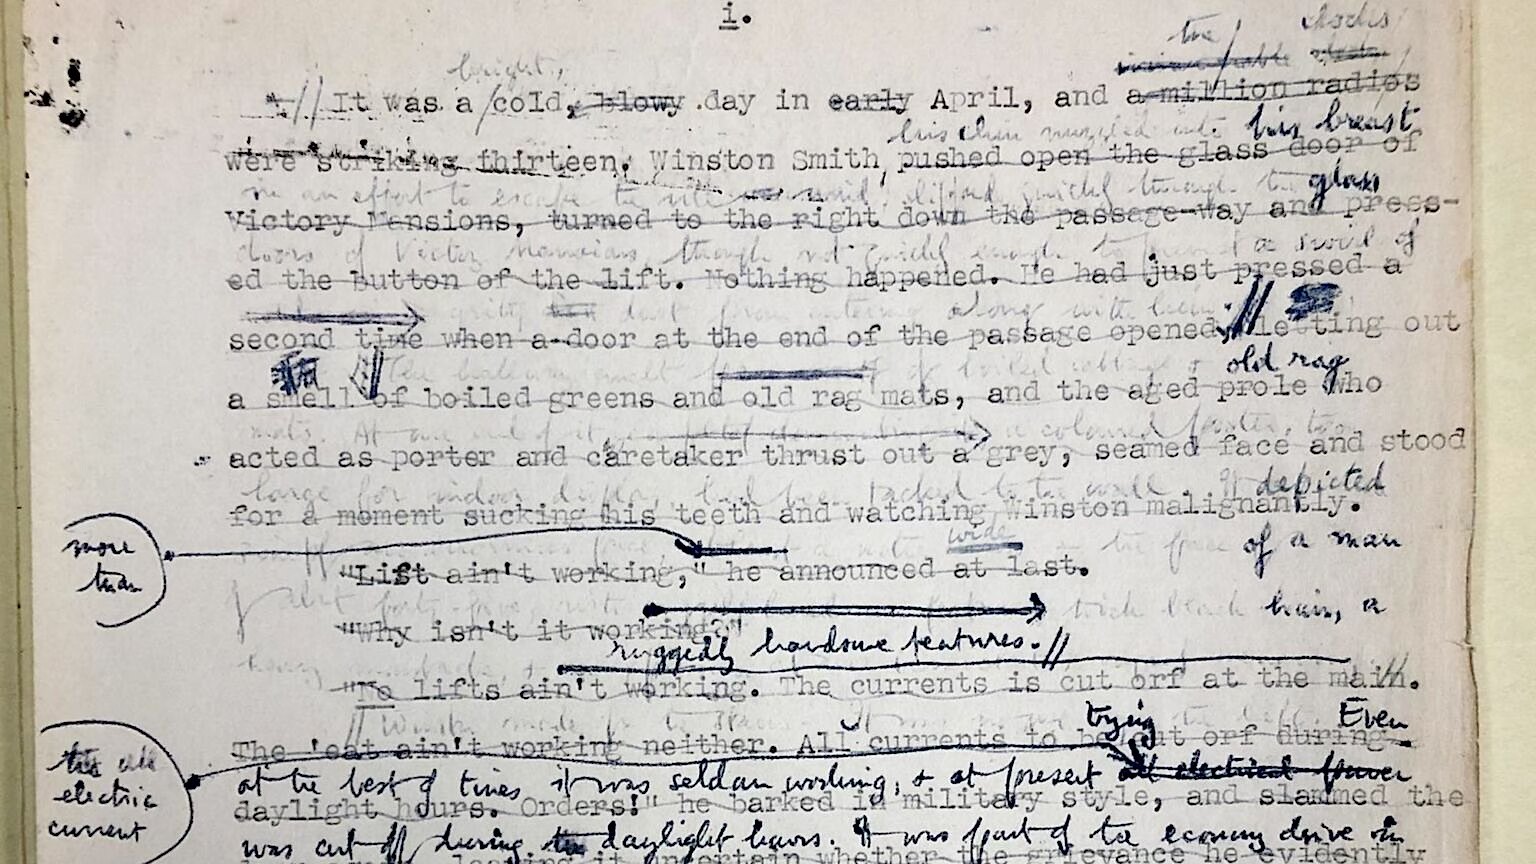 i.
the clocks
bright,
It was a cold, blowy day in early April, and a million radios
his chin nuzzled into his breast
were striking thirteen. Winston Smith, pushed open the glass door of
in an effort to escape the vile wind, slipped quickly through the glass
Victory Mansions, turned to the right down the passage-way and press-
doors of Victory Mansions, though not quickly enough to prevent a swirl of
ed the button of the lift. Nothing happened. He had just pressed a
gritty dust from entering along with him.
second time when a door at the end of the passage opened, letting out
The hallway smelt of boiled cabbage & old rag
a smell of boiled greens and old rag mats, and the aged prole who
mats. At one end of it a coloured poster, too
acted as porter and caretaker thrust out a grey, seamed face and stood
large for indoor display, had been tacked to the wall. It depicted
for a moment sucking his teeth and watching Winston malignantly.
more
than
wide
enormous face, the face of a man
"Lift ain't working," he announced at last.
of about forty-five, thick black hair, a
"Why isn't it working?"
ruggedly handsome features.
heavy
"No lifts ain't working. The currents is cut orf at the main.
Winston made for the stairs. It was no use trying the lift. Even
The 'eat ain't working neither. All currents to be cut orf during
the
electric
current
at the best of times it was seldom working, & at present all electrical power
daylight hours. Orders!" he barked in military style, and slammed the
was cut off during the daylight hours. It was part of the economy drive in
uncertain whether the grievance he evidently